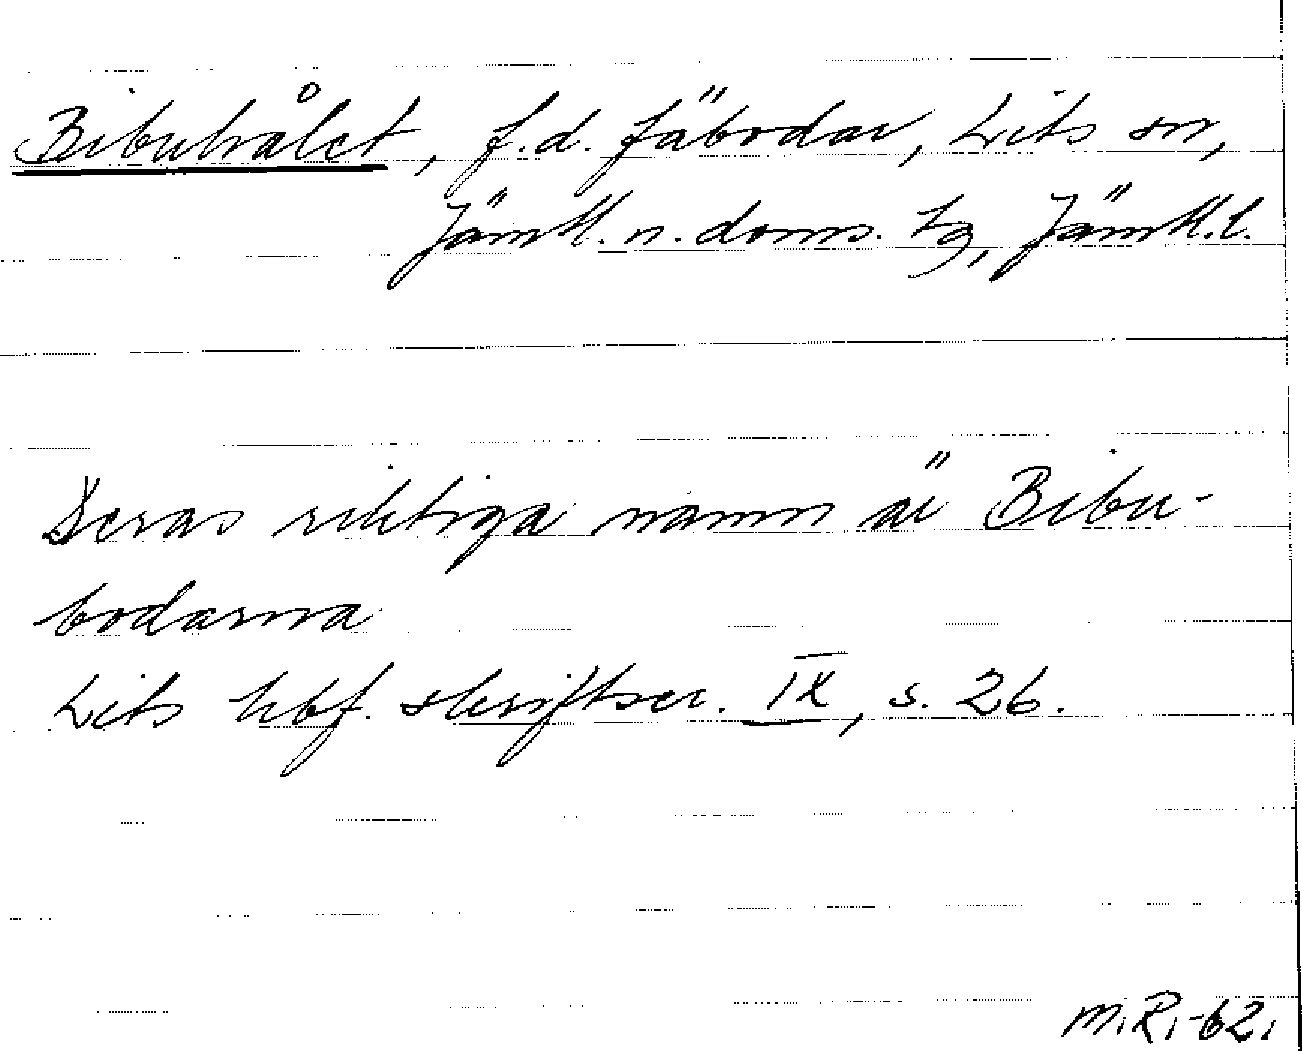 Bibuhålet, f.d. fäbodar, Lits sn,
Jämtl. n. doms. tg, Jämtl. l.
Deras riktiga namn är Bibu-
bodarna
Lits hbf. skriftser. IX, s. 26.
M.R.-62.